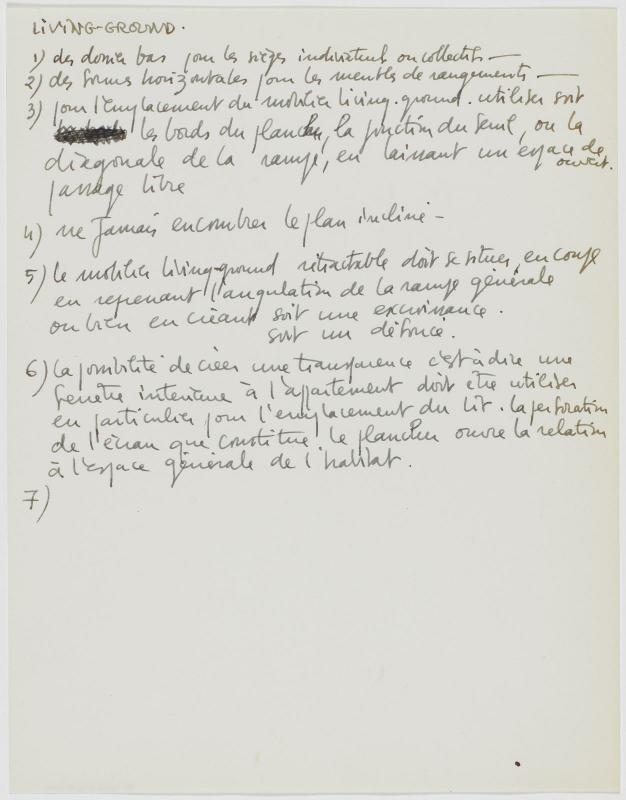 LIVING-GROUND.
1) des dossier bas pour les sièges individuels ou collectifs —
2) des formes horizontales pour les meubles de rangements —
3) pour l'emplacement du mobilier living.ground. utiliser soit
les bords du plancher, la jonction du seuil, ou la
diagonale de la rampe, en laissant un espace de
ouvert.
passage libre
4) ne jamais encombrer le plan incliné —
5) le mobilier living-ground rétractable doit se situer, en coupe
en reprenant l'angulation de la rampe générale
ou bien en créant soit une excroissance.
soit un défoncé.
6) la possibilité de créer une transparence c'est à dire une
fenêtre intérieure à l'appartement doit être utiliser
en particulier pour l'emplacement du lit. la perforation
de l'écran que constitue le plancher ouvre la relation
à l'espace générale de l'habitat.
7)